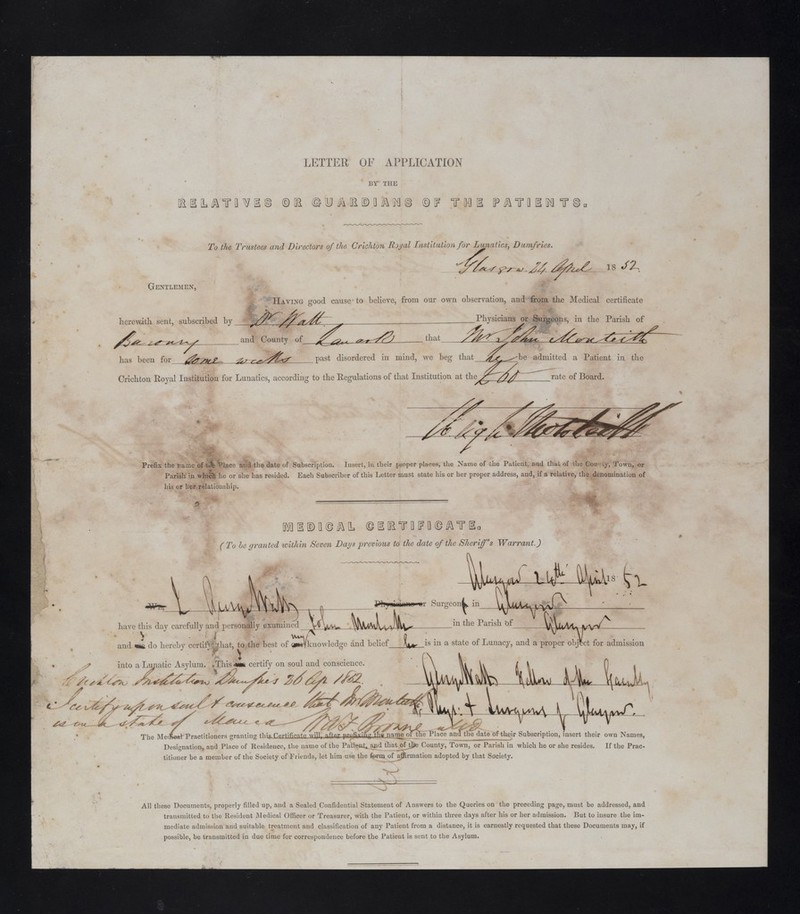 LETTER OF APPLICATION
BY THE
RELATIVES OR GUARDIANS OF THE PATIENTS.
To the Trustees and Directors of the Crichton Royal Institution for Lunatics, Dumfries.
Glasgow 24 April 1852
GENTLEMEN,
HAVING good cause to believe, from our own observation, and from the Medical certificate
herewith sent, subscribed by Dr Watt Physicians or Surgeons, in the Parish of
Barony and County of Lanark that Mr John Monteith
has been for some weeks past disordered in mind, we beg that he be admitted a Patient in the
Crichton Royal Institution for Lunatics, according to the Regulations of that Institution at the £60 rate of Board.
Monteith
Prefix the name of the Place and the date of Subscription. Insert, in their proper places, the Name of the Patient, and that of the County, Town, or
Parish in which he or she has resided. Each Subscriber of this Letter must state his or her proper address, and, if a relative, the denomination of
his or her relationship.
MEDICAL CERTIFICATE.
(To be granted within Seven Days previous to the date of the Sheriff's Warrant.)
Glasgow 24th April 1852
We, I George Watt Physicians or Surgeon in Glasgow
have this day carefully and personally examined John Monteith in the Parish of Glasgow
and do hereby certify that, to the best of my knowledge and belief he is in a state of Lunacy, and a proper object for admission
into a Lunatic Asylum. This certify on soul and conscience.
George Watt Fellow of the Faculty
of Phys. & Surgeons of Glasgow.
Crichton Institution Dumfries 26 Ap 1852
I certify upon soul & conscience that Mr Monteith
is in a state of Mania
The Medical Practitioners granting this Certificate will, after prefixing the name of the Place and the date of their Subscription, insert their own Names,
Designation, and Place of Residence, the name of the Patient, and that of the County, Town, or Parish in which he or she resides. If the Prac-
titioner be a member of the Society of Friends, let him use the form of affirmation adopted by that Society.
All these Documents, properly filled up, and a Sealed Confidential Statement of Answers to the Queries on the preceding page, must be addressed, and
transmitted to the Resident Medical Officer or Treasurer, with the Patient, or within three days after his or her admission. But to insure the im-
mediate admission and suitable treatment and classification of any Patient from a distance, it is earnestly requested that these Documents may, if
possible, be transmitted in due time for correspondence before the Patient is sent to the Asylum.